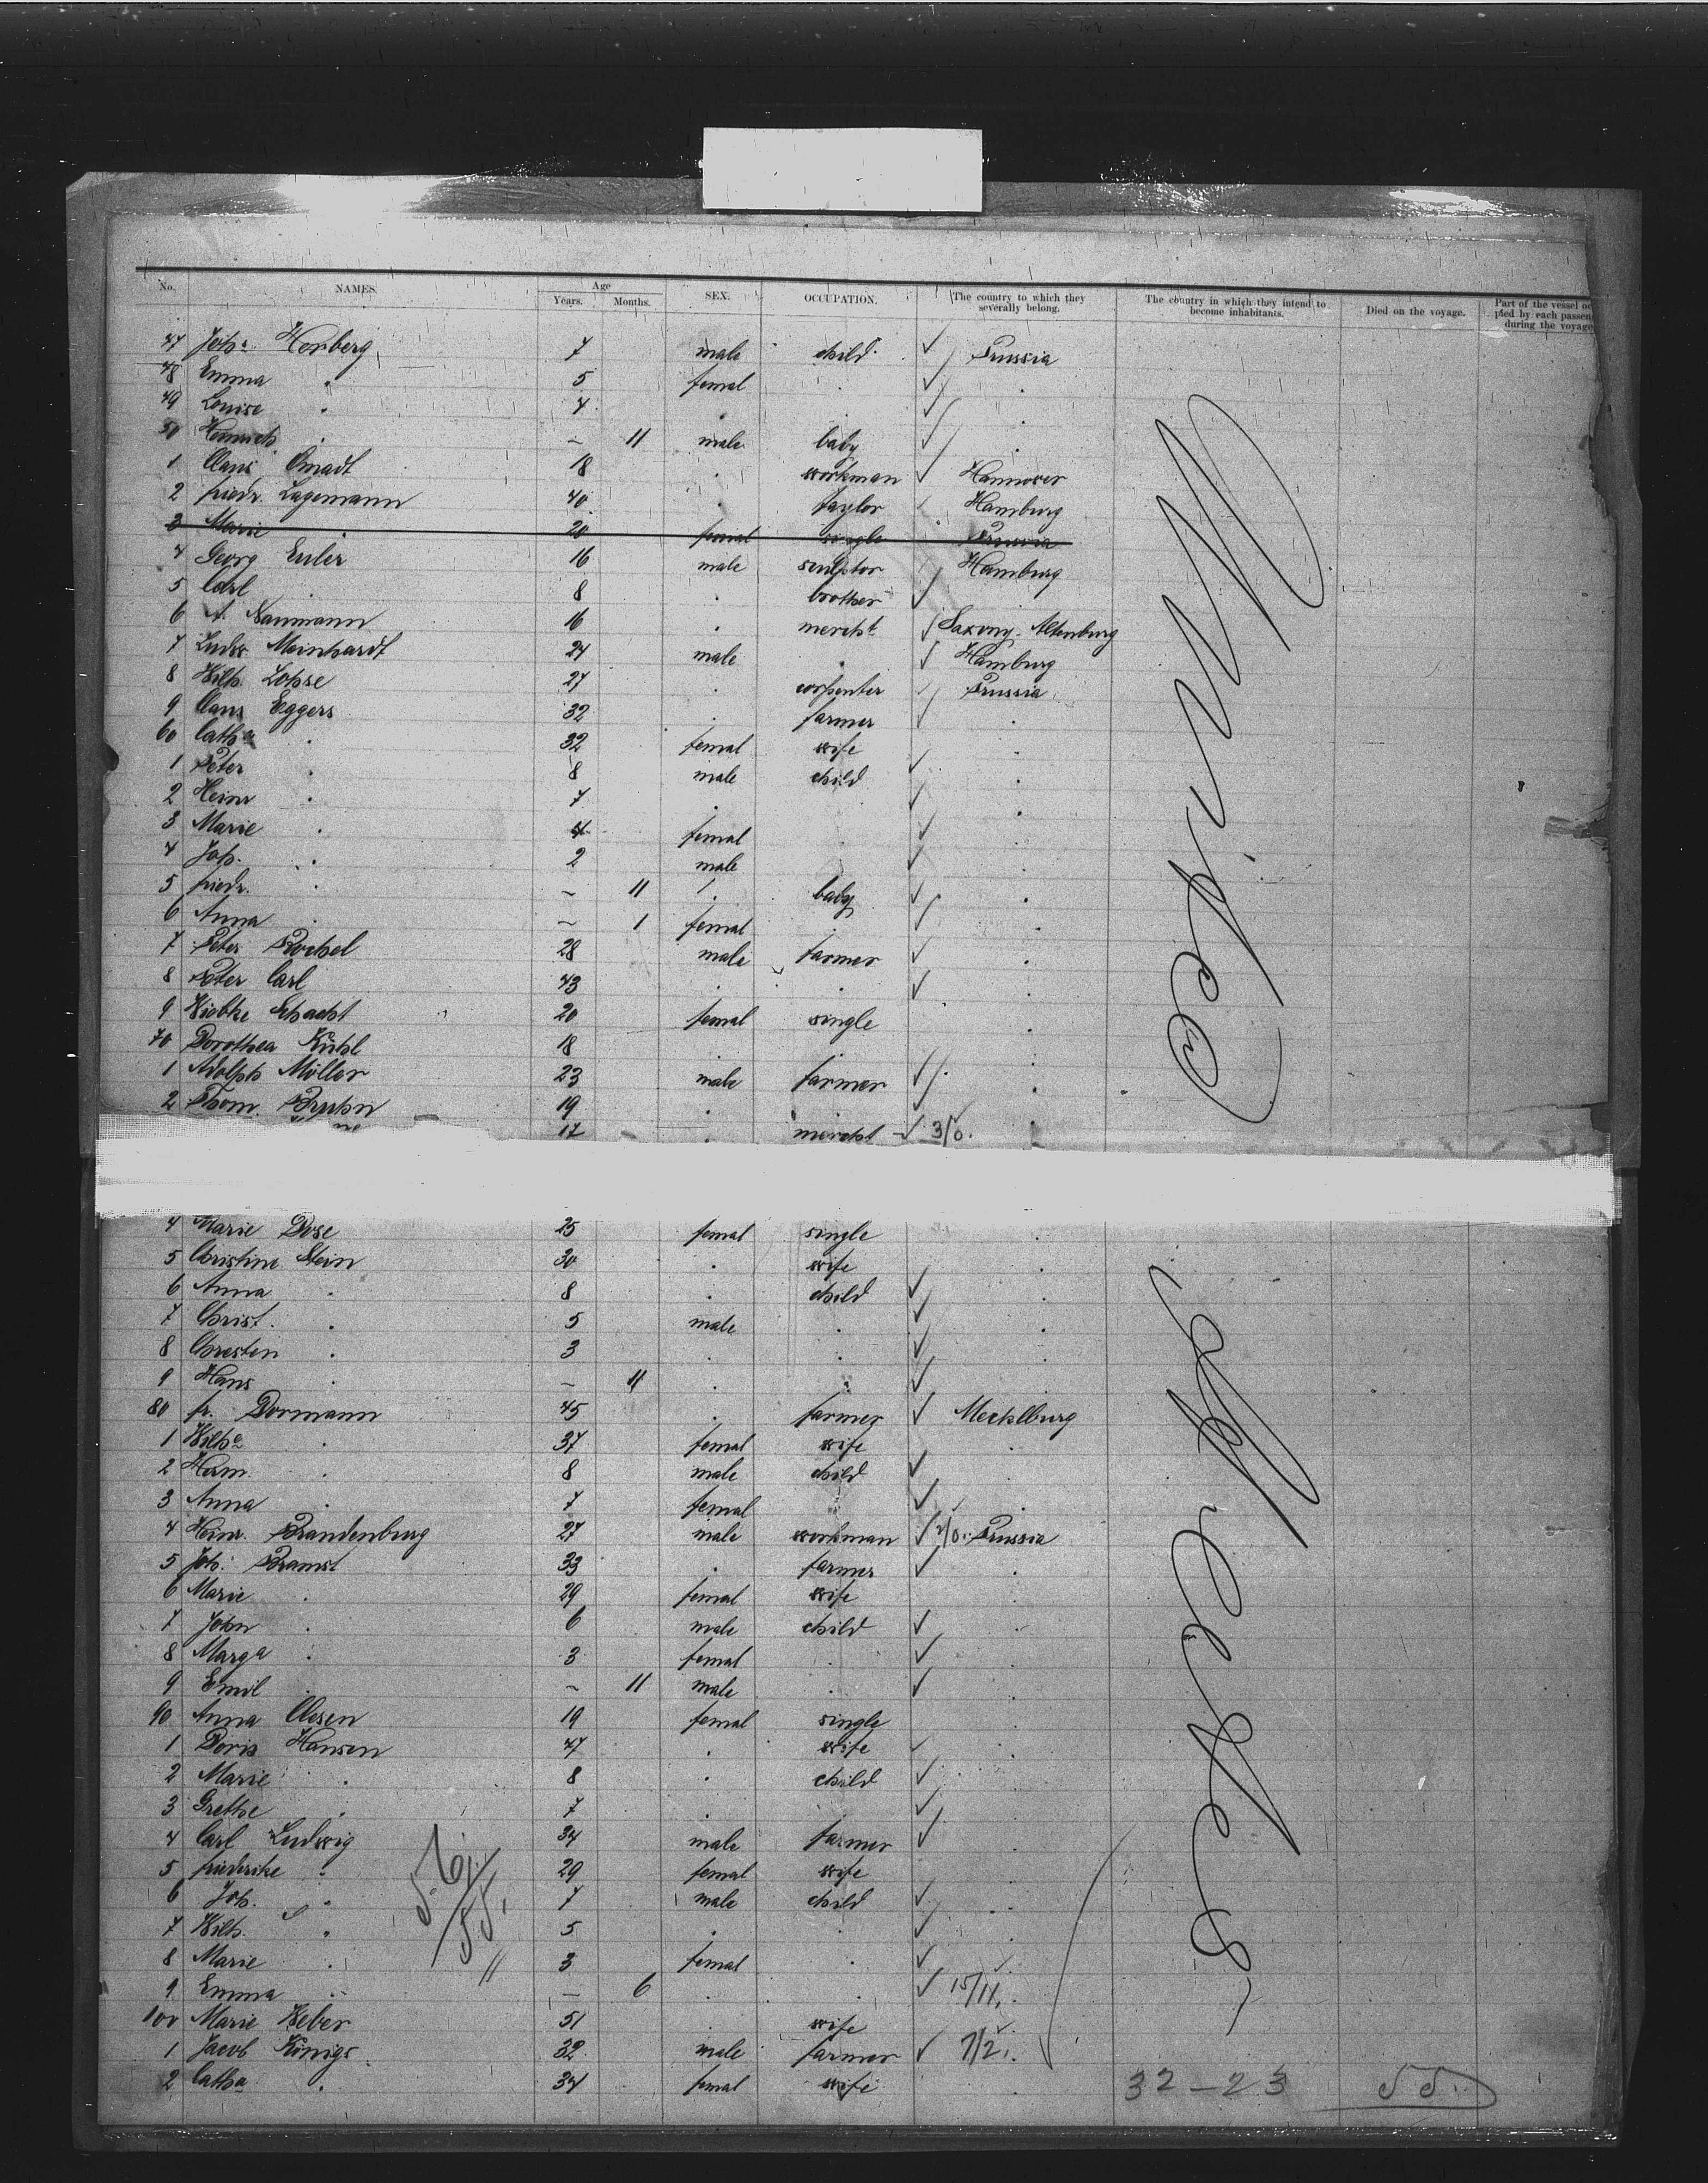 No. NAMES. Age Years. Months. SEX. OCCUPATION. The country to which they severally belong. The country in which they intend to become inhabitants. Died on the voyage. Part of the vessel during the voyage
47 Joh. 7 male child Prussia
48 Emma " 5 femal
49 Louise " 4
50 Heinrich " – 11 male baby
1 Claus 18 workman Hannover
2 Friedr. Lagemann 40 taylor Hamburg
3 Marie 20 femal single Prussia
4 Georg Euler 16 male sculptor Hamburg
5 Carl 8 brother
6 A. Naumann 16 mercht Saxony-Altenburg
7 Meinhardt 24 male Hamburg
8 Wilh. Lohse 27 carpenter Prussia
9 Claus Eggers 32 farmer
60 Catha 32 femal wife
1 Peter 8 male child
2 Heinr 7
3 Marie 4 femal
4 Joh. 2 male
5 Friedr. – 11 baby
6 Anna – 1 femal
7 Peter 28 male farmer
8 Peter Carl 43
9 Wiebke Schacht 20 femal single
70 Dorothea Kühl 18
1 Adolph Möller 23 male farmer
2 Thom. 19
17 mercht 3/0.
4 Marie Dose 25 femal single
5 Christine Stein 30 wife
6 Anna 8 child
7 Christ. 5 male
8 Chresten 3
9 Hans – 11
80 Fr. Dormann 45 farmer Mecklburg
1 Wilhe 37 femal wife
2 Herm. 8 male child
3 Anna 7 femal
4 Heinr. Brandenburg 27 male workman Prussia
5 Joh. Bramst 33 farmer
6 Marie 29 femal wife
7 John 6 male child
8 Marga 3 femal
9 Emil – 11 male
90 Anna Olesen 19 femal single
1 Doris Hansen 47 wife
2 Marie 8 child
3 Grethe 7
4 Carl Ludwig 34 male farmer
5 Friederike 29 femal wife
6 Joh. 7 male child
7 Wilh. 5
8 Marie 3 femal
9 Emma – 6 15/11.
100 Marie Weber 51 wife
1 Jacob Königs 32 male farmer 7/2.
2 Catha 34 femal wife
32 – 23 55.
United
States